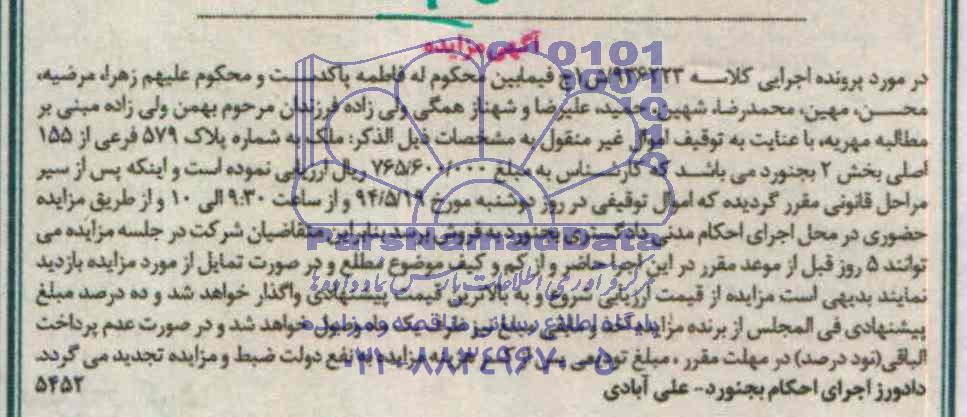 آگهی مزایده
در مورد پرونده اجرایی کلاسه ۹۳۶۲۲۳/ش۱ج فیمابین محکوم له فاطمه پاکدست و محکوم علیهم زهرا، مرضیه،
محسن، مهین، محمدرضا، شهین، حمید، علیرضا و شهناز همگی ولی زاده فرزندان مرحوم بهمن ولی زاده مبنی بر
مطالبه مهریه، با عنایت به توقیف اموال غیر منقول به مشخصات ذیل الذکر: ملک به شماره پلاک ۵۷۹ فرعی از ۱۵۵
اصلی بخش ۲ بجنورد می باشد که کارشناس به مبلغ ۷۶۵/۶۰۰/۰۰۰ ریال ارزیابی نموده است و اینکه پس از سیر
مراحل قانونی مقرر گردیده که اموال توقیفی در روز دوشنبه مورخ ۹۴/۵/۱۹ و از ساعت ۹:۳۰ الی ۱۰ و از طریق مزایده
حضوری در محل اجرای احکام مدنی دادگستری بجنورد به فروش برسد بنابراین متقاضیان شرکت در جلسه مزایده می
توانند ۵ روز قبل از موعد مقرر در این اجرا حاضر و از کم و کیف موضوع مطلع و در صورت تمایل از مورد مزایده بازدید
نمایند بدیهی است مزایده از قیمت ارزیابی شروع و به بالاترین قیمت پیشنهادی واگذار خواهد شد و ده درصد مبلغ
پیشنهادی فی المجلس از برنده مزایده اخذ و مابقی مبلغ نیز ظرف یک ماه وصول خواهد شد و در صورت عدم پرداخت
الباقی(نود درصد) در مهلت مقرر ، مبلغ تودیعی پس از کسر هزینه مزایده به نفع دولت ضبط و مزایده تجدید می گردد.
دادورز اجرای احکام بجنورد- علی آبادی
۵۴۵۲
ParsNamadData
مرکز فرآوری اطلاعات پارس نماد داده ها
پایگاه اطلاع رسانی مناقصه و مزایده
۰۲۱-۸۸۳۴۹۶۷۰-۵